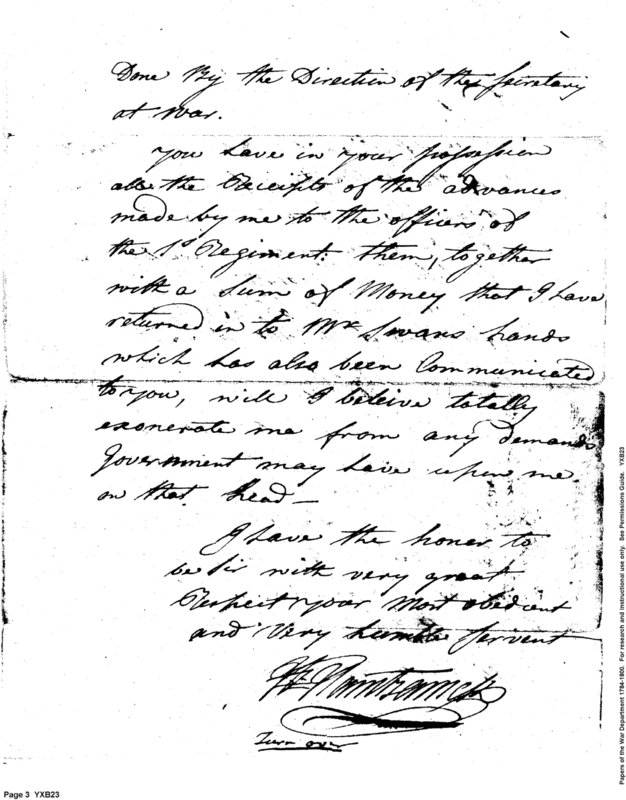 Done By the Direction of the Secretary
at War.
you have in your possession
all the Receipts of the advances
made by me to the officers of
the 1st Regiment. them, together
with a Sum of Money that I have
returned in to Mr Swans hands
which has also been Communicated
to you, will I beleive totally
exonerate me from any demands
Government may have upon me
on that head—
I have the honor to
be Sir with very great
Respect your Most obedient
and Very humble Servent
Hamtramck
Turn over
Page 3 YXB23
Papers of the War Department 1784-1800. For research and instructional use only. See Permissions Guide. YXB23